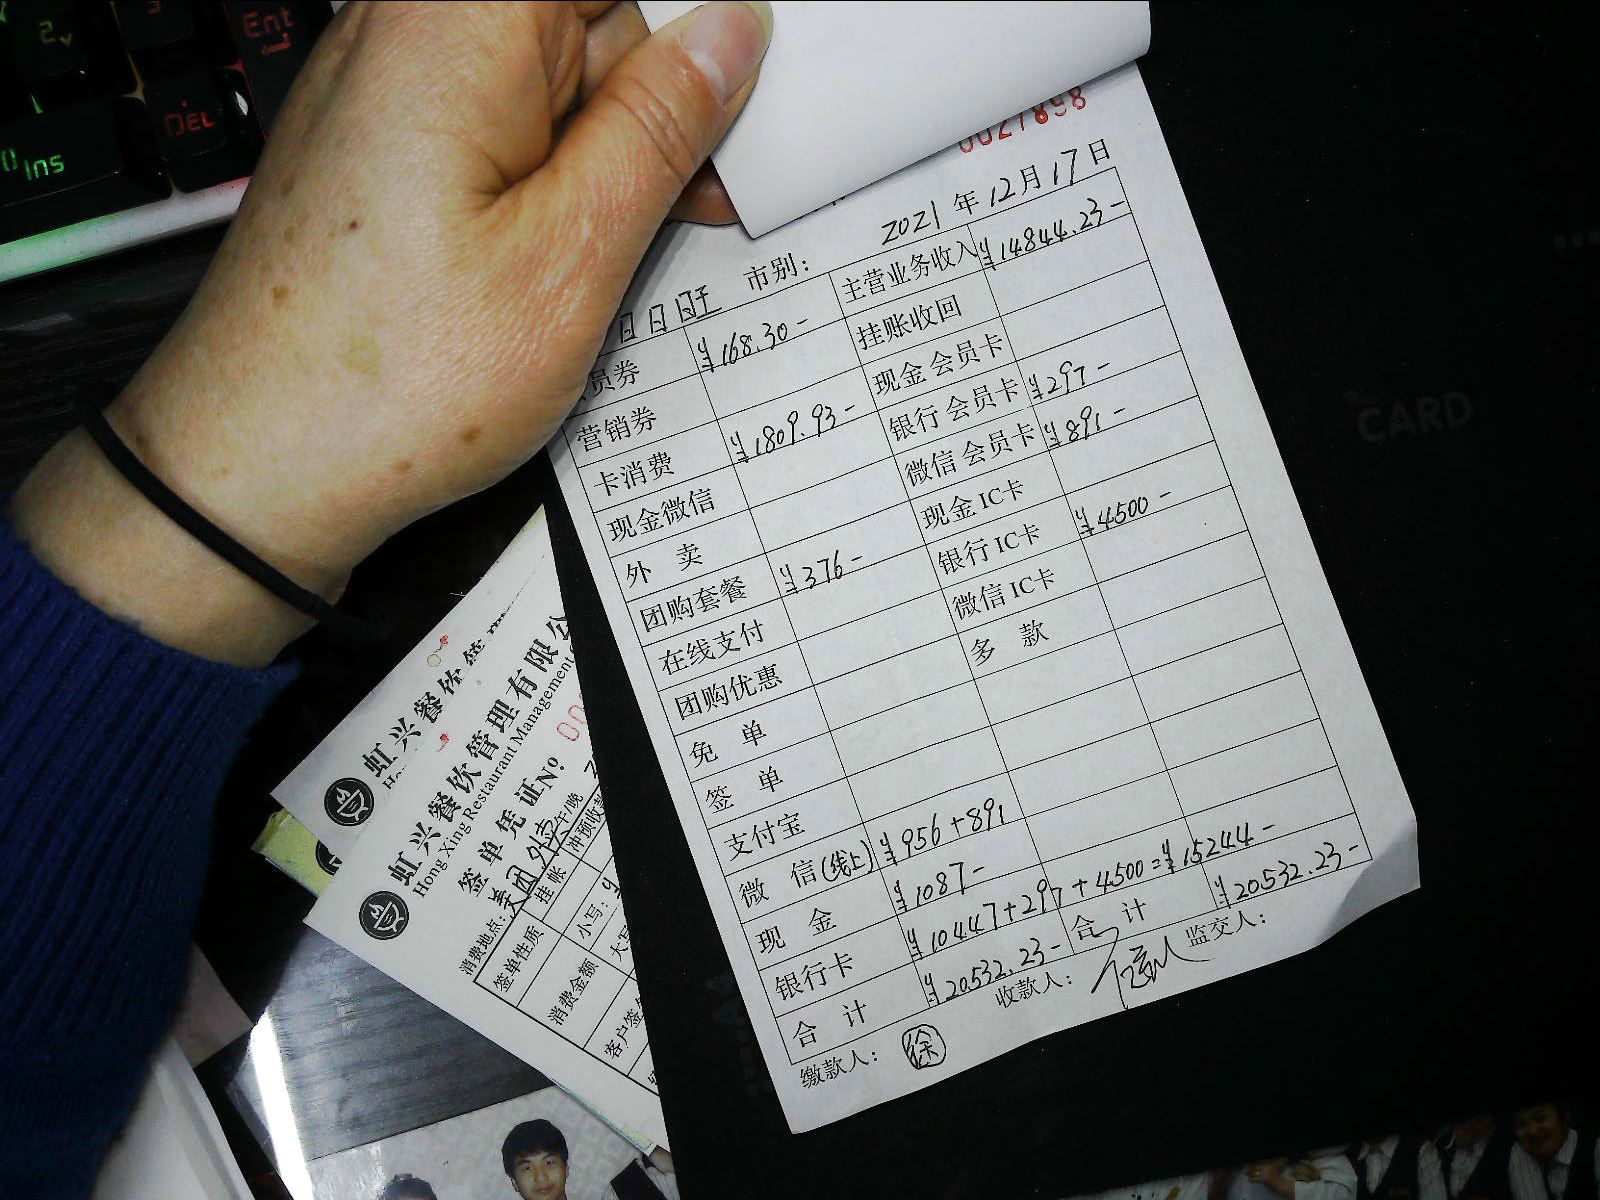 2
Ent
DEL
Ins
0027898
2021年12月17日
市别:
员券 ¥168.30- 主营业务收入 ¥14844.23-
营销券 挂账收回
卡消费 ¥1809.93- 现金会员卡
现金微信 银行会员卡 ¥297-
外 卖 微信会员卡 ¥891-
团购套餐 ¥376- 现金IC卡
在线支付 银行IC卡 ¥4500-
团购优惠 微信IC卡
免 单 多 款
签 单
支付宝
微 信(线上) ¥956+891
现 金 ¥1087-
银行卡 ¥10447+297+4500=¥15244-
合 计 ¥20532.23- 合 计 ¥20532.23-
缴款人: 徐 收款人: 监交人:
虹兴餐饮管
虹兴餐饮管理有限公
Hong Xing Restaurant Management
签单凭证 Nº
00
消费地点: 美团外卖 午/晚
签单性质 挂帐 冲预收款
消费金额 小写: ¥
大写
客户签
CARD